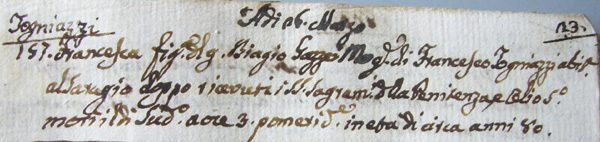 Togniazzi
Adi 26. Marzo 23.
157. Francesca fig. d. q. Biagio Gazzo Mog. di Francesco Togniazzi abit.
al Daragio doppo ricevuti i SS. Sagrem. della Penitenza e Olio S.º
morì il di Sud.º a ore 3. pomerid.e in eta di circa anni 80.